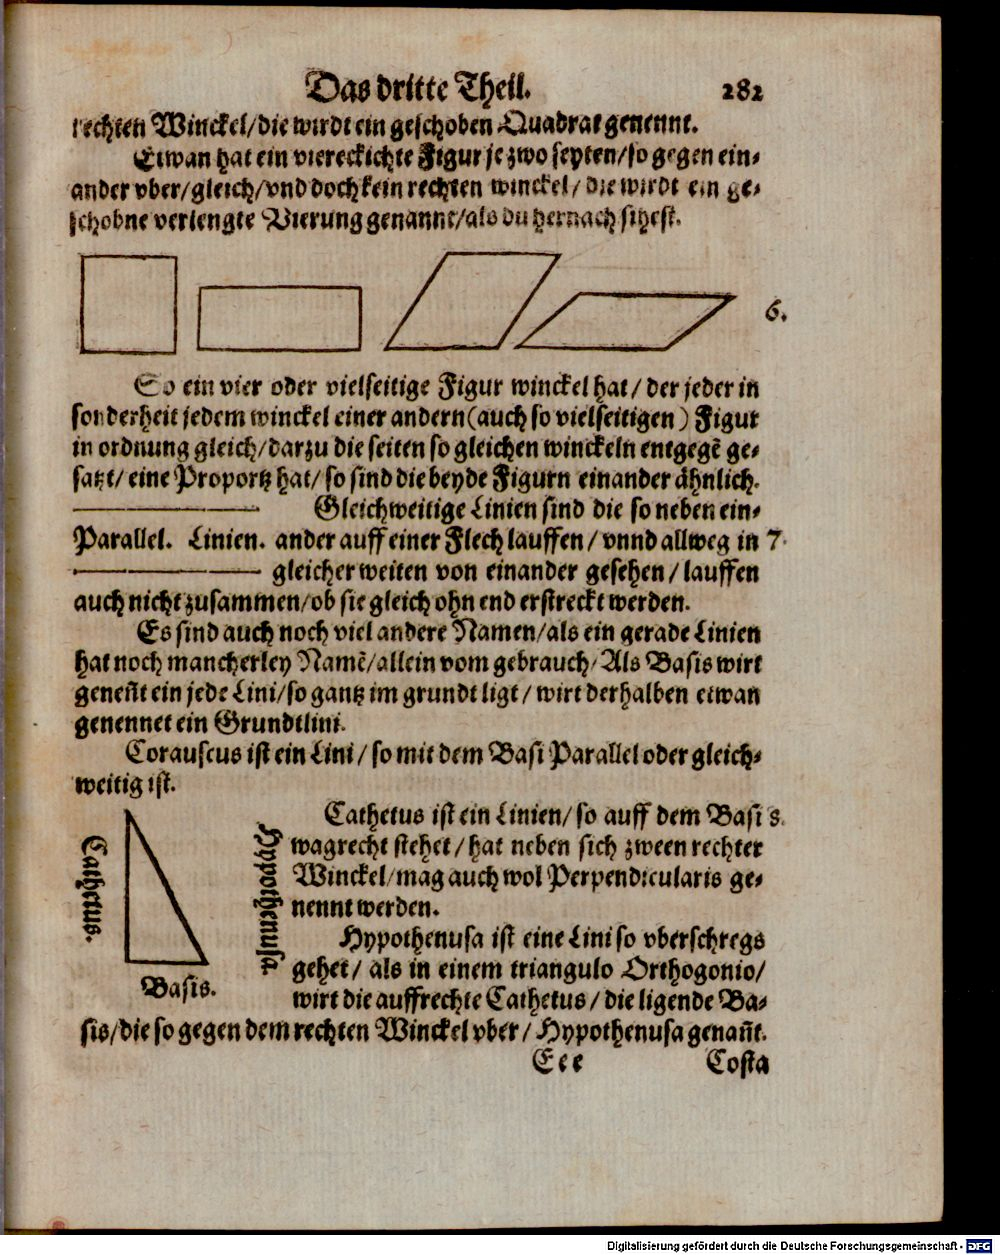 Das dritte Theil. 282
rechten Winckel/die wirdt ein geschoben Quadrat genennt.
Etwan hat ein viereckichte Figur je zwo seyten/so gegen ein-
ander vber/gleich/vnd doch kein rechten winckel/die wirdt ein ge-
schobne verlengte Vierung genannt/als du hernach sihest.
6.
So ein vier oder vielseitige Figur winckel hat/der jeder in
sonderheit jedem winckel einer andern(auch so vielseitigen) Figur
in ordnung gleich/darzu die seiten so gleichen winckeln entgegẽ ge-
satzt/eine Proportz hat/so sind die beyde Figurn einander ähnlich.
Gleichweitige Linien sind die so neben ein-
Parallel. Linien. ander auff einer Flech lauffen/vnnd allweg in 7.
gleicher weiten von einander gesehen/lauffen
auch nicht zusammen/ob sie gleich ohn end erstreckt werden.
Es sind auch noch viel andere Namen/als ein gerade Linien
hat noch mancherley Namẽ/allein vom gebrauch/Als Basis wirt
geneñt ein jede Lini/so gantz im grundt ligt/wirt derhalben etwan
genennet ein Grundtlini.
Corauscus ist ein Lini/so mit dem Basi Parallel oder gleich-
weitig ist.
Cathetus ist ein Linien/so auff dem Basi 8.
wagrecht stehet/hat neben sich zween rechter
Winckel/mag auch wol Perpendicularis ge-
nennt werden.
Cathetus.
Hypothenusa
Basis.
Hypothenusa ist eine Lini so vberschregs
gehet/als in einem triangulo Orthogonio/
wirt die auffrechte Cathetus/die ligende Ba-
sis/die so gegen dem rechten Winckel vber/Hypothenusa genañt.
Eee Costa
Digitalisierung gefördert durch die Deutsche Forschungsgemeinschaft - DFG